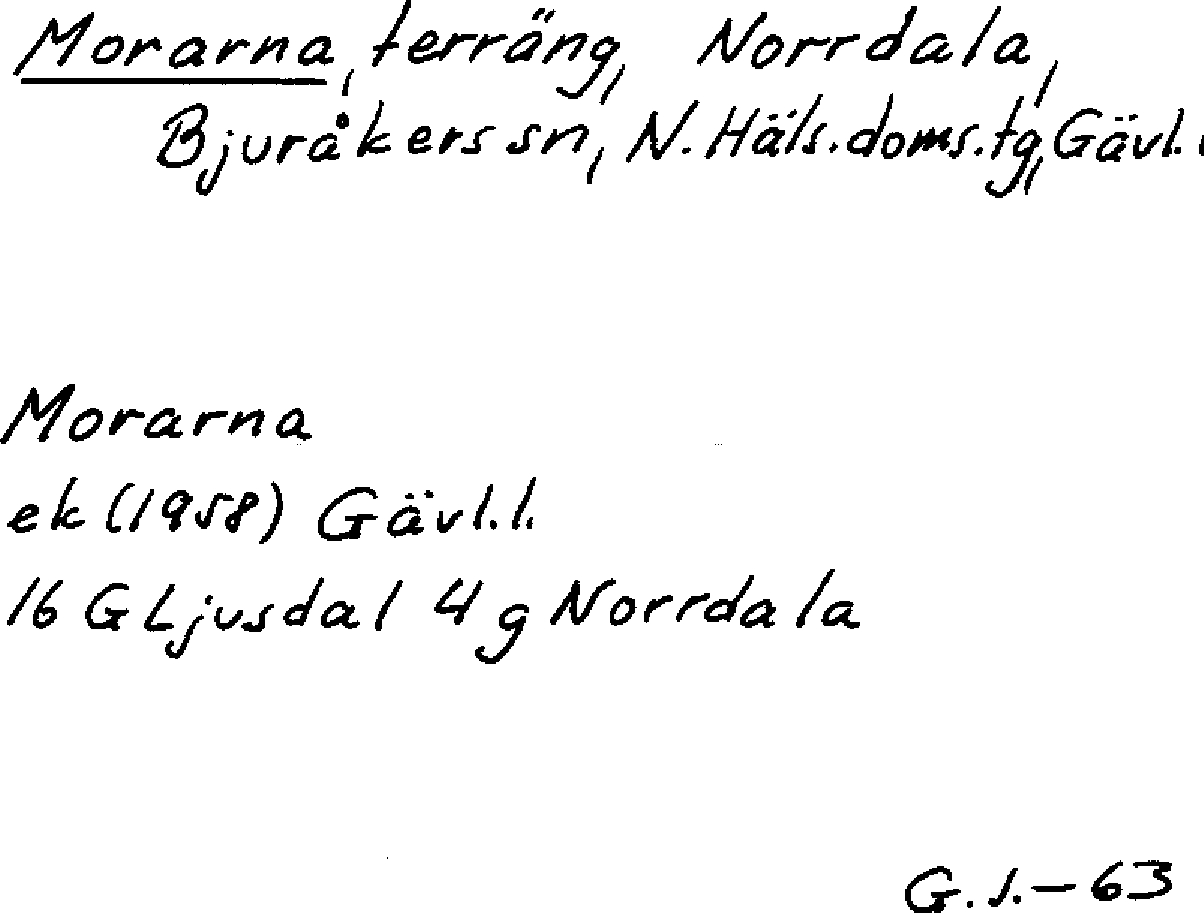 Morarna, terräng, Norrdala,
Bjuråkers sn, N. Häls. doms. tg, Gävl.
Morarna
ek (1958) Gävl. l.
16 G Ljusdal 4 g Norrdala
G. S. - 63